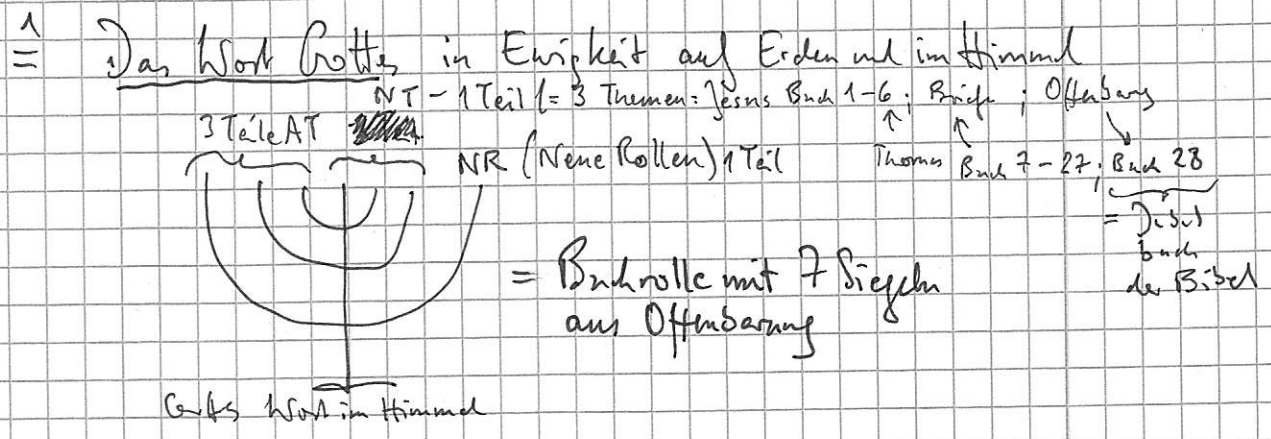 1
Das Wort Gottes in Ewigkeit auf Erden und im Himmel
NT - 1 Teil (= 3 Themen: Jesus Buch 1-6; Briefe; Offenbarung
3 Teile AT
NR (Neue Rollen) 1 Teil
Thomas Buch 7-27; Buch 28
= Bibel
buch
der Bibel
= Buchrolle mit 7 Siegeln
aus Offenbarung
Gottes Wort im Himmel